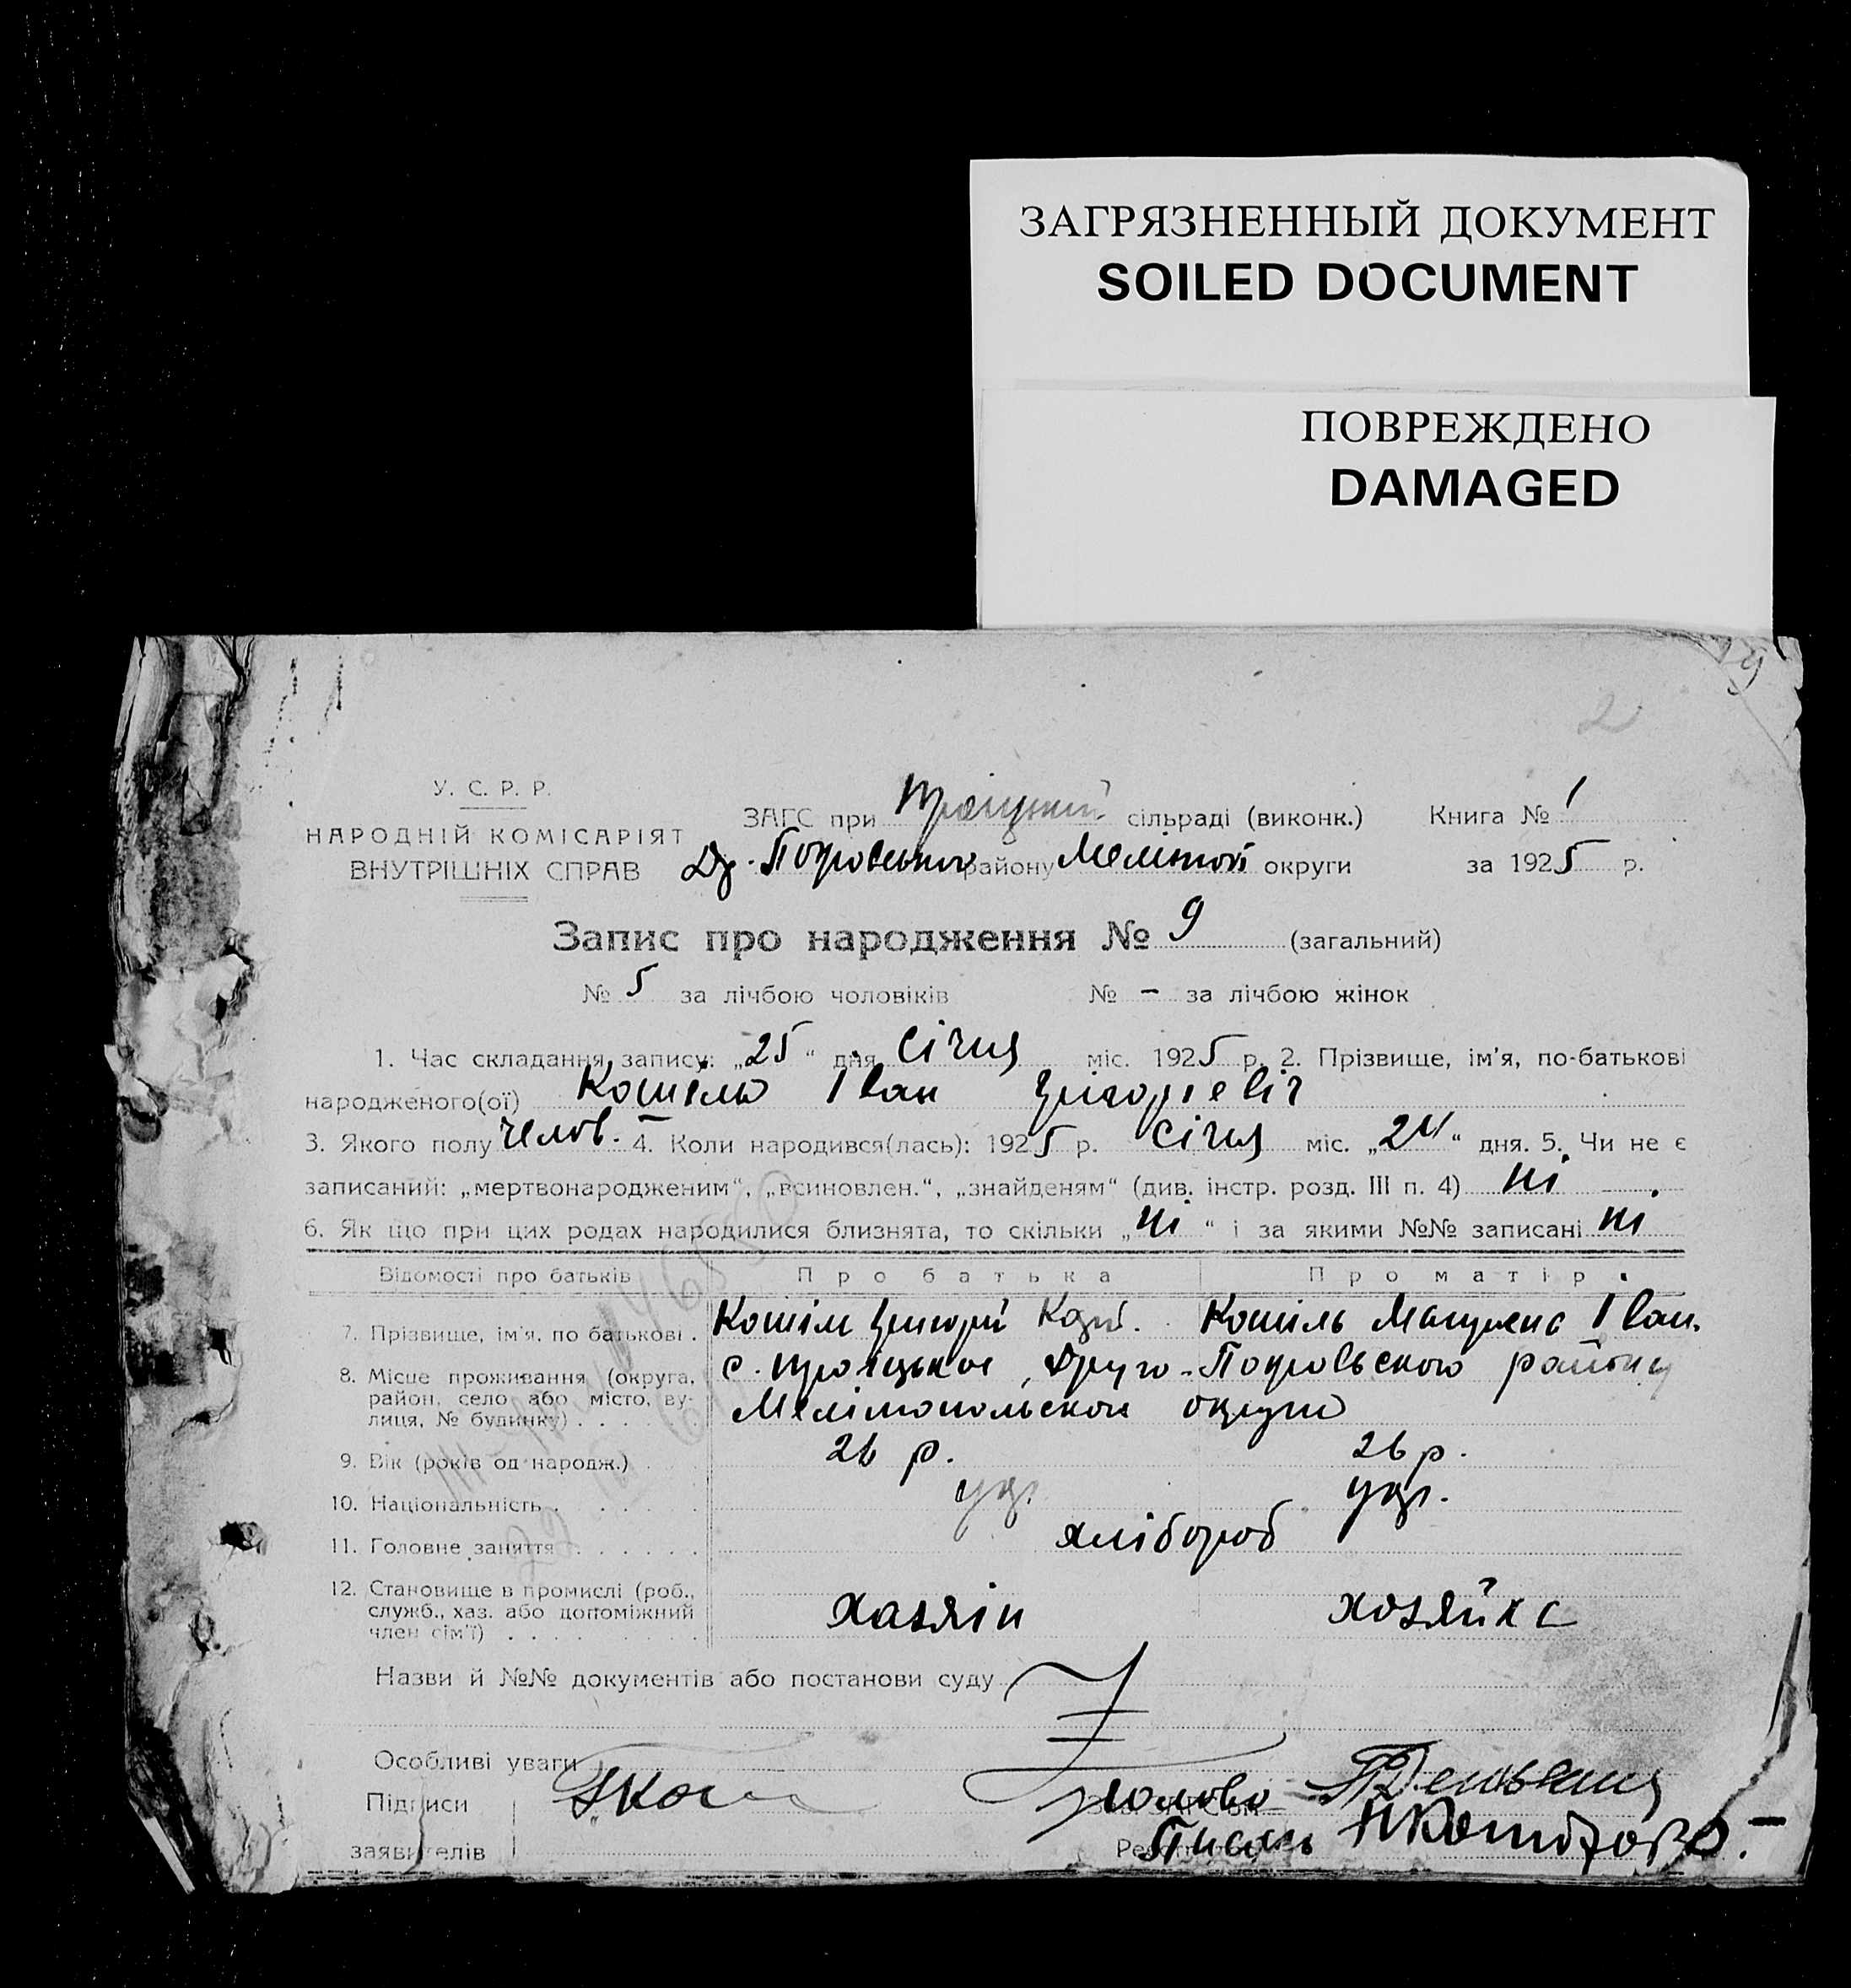 ЗАГРЯЗНЕННЫЙ ДОКУМЕНТ
SOILED DOCUMENT
ПОВРЕЖДЕНО
DAMAGED
2
У. С. Р. Р.
НАРОДНІЙ КОМІСАРІЯТ
ВНУТРІШНІХ СПРАВ
ЗАГС при Троіцький сільраді (виконк.) Книга № 1
Др. Покровського району Мелітопі округи за 1925 р.
Запис про народження № 9 (загальний)
№ 5 за лічбою чоловіків № – за лічбою жінок
1. Час складання запису: „25“ дня січня міс. 1925 р. 2. Прізвище, ім'я, по-батькові
народженого(ої) Кошіль Іван Григоріевіч
3. Якого полу челов. 4. Коли народився(лась): 1925 р. січня міс. „24“ дня. 5. Чи не є
записаний: „мертвонародженим“, „всиновлен.“, „знайденям“ (див. інстр. розд. III п. 4) ні
6. Як що при цих родах народилися близнята, то скільки „ні“ і за якими №№ записані ні
Відомості про батьків Про батька Про матір
7. Прізвище, ім'я, по батькові . Кошіль Григорій Кошіль Іван.
8. Місце проживання (округа, район, село або місто, вулиця, № будинку) . . . . с. Троіцькое, Друго-Покровьского району
Мелітопольскои округи
9. Вік (років од народж.) . 26 р. 26 р.
10. Національність . . . . . укр. укр.
11. Головне заняття . . . . . . хлібороб
12. Становище в промислі (роб., служб., хаз. або допоміжний член сім'ї) . . . . . . хазяін хозяйка
Назви й №№ документів або постанови суду
Особливі уваги
Підписи
заявителів
Голова